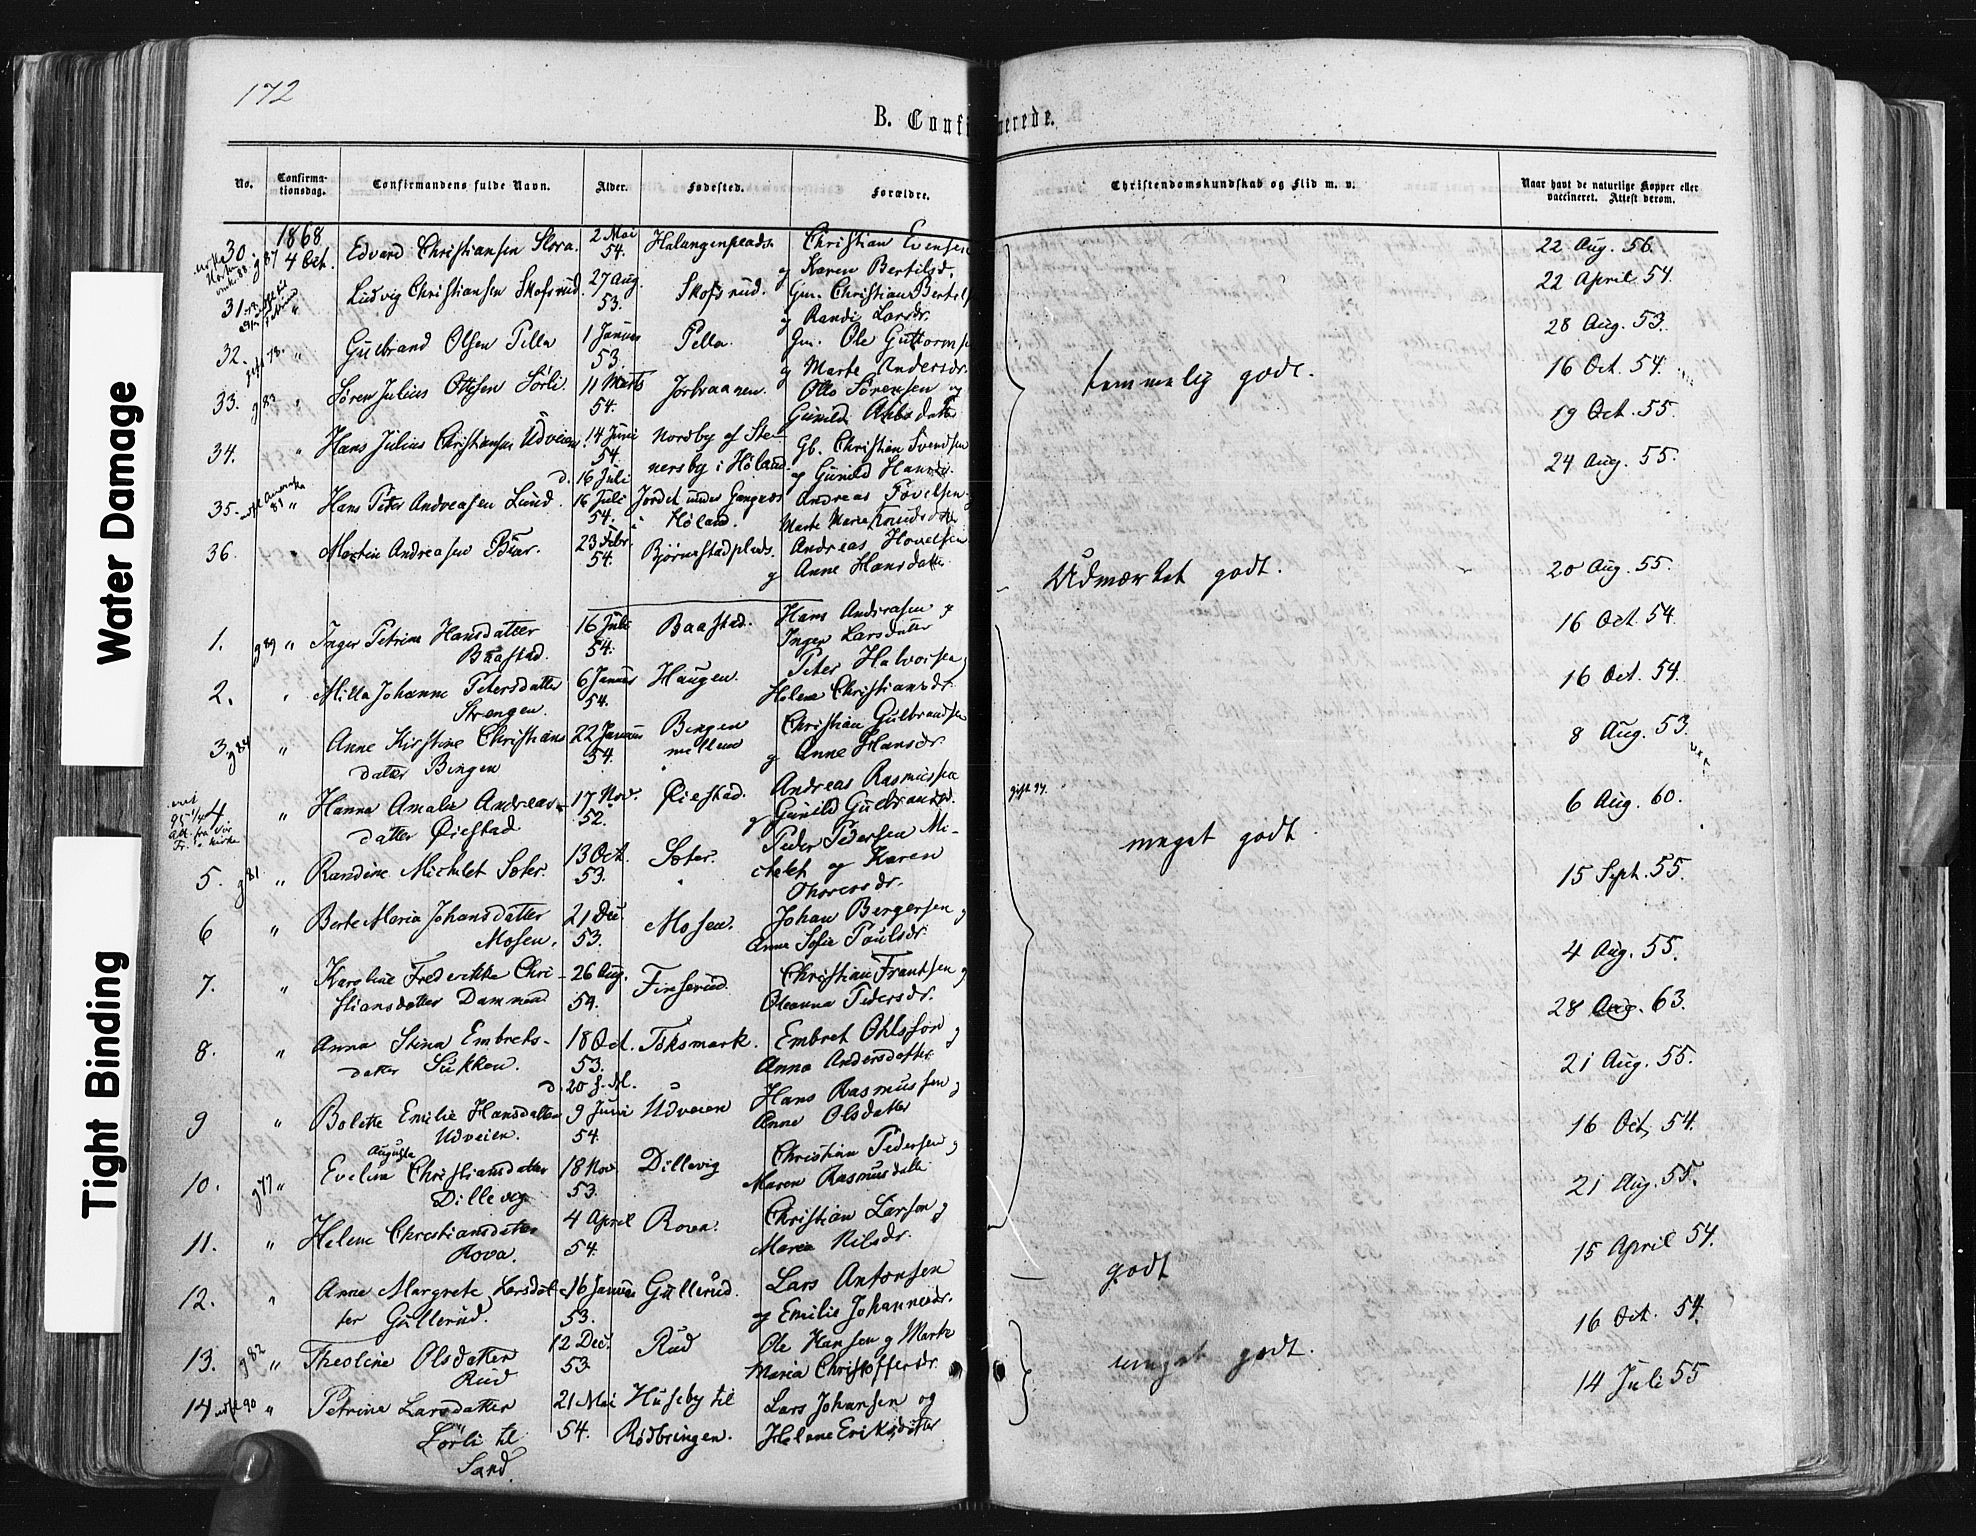 172
B. Confirmerede.
No. Confirma-tionsdag. Confirmandens fulde Navn. Alder. Fødested. Forældre. Christendomskundskab og Flid m. v. Naar havt de naturlige Kopper eller vaccineret. Attest derom.
1868
30. 4 Oct. Edvard Christiansen Slora. 2 Mai 54. Halangenplads. Christian Evensen og Karen Bertilsd. 22 Aug. 56.
31. " Ludvig Christiansen Skofsrud. 27 Aug. 53. Skofsrud. Gm. Christian Bertils og Randi Larsdr. 22 April 54.
32. " Gulbrand Olsen Tella 1 Januar 53. Tella. Gm. Ole Guttorms og Marte Andersdr. 28 Aug. 53.
33. g 83 " Søren Julius Ottesen Sørli. 11 Marts 54. Jorbraanen. Otto Sørensen og Gunild datter 16 Oct. 54.
34. " Hans Julius Christiansen Udveien. 14 Juni 54. Nordby af Stenersby i Høland. Gb. Christian Svendsen og Gunild Hansdr. 19 Oct. 55.
d. 16 Juli
35. Amerika 81 " Hans Peter Andreasen Lund. 16 Juli 54. Jordet under Gangnes i Høland. Andreas Marte Marie Knudsdatter 24 Aug. 55.
temmelig godt.
36. " Martin Andreasen Buer. 23 Febr. 54. Bjørnestadplads. Andreas Hovelsen og Anne Hansdatter Udmærket godt. 20 Aug. 55.
1. g 89 " Inger Petrine Hansdatter Baastad. 16 Juli 54. Baastad. Hans Andreasen og Inger Larsdatter 16 Oct. 54.
2. " Milla Johanne Petersdatter Strengen. 6 Januar 54. Haugen. Peter Halvorsen Helene Christiansdr. 16 Oct. 54.
3. g 84 " Anne Kirstine Christiansdatter Bingen 22 Januar 54. Bingen mellem Christian Gulbrandsen og Anne Hansdr. 8 Aug. 53.
4 " Hanna Amalie Andreasdatter Øiestad 17 Nov. 52. Øiestad. Andreas Rasmussen og Gunild Gulbrandsd. gift 97. 6 Aug. 60.
meget godt.
5. g 81 " Randine Michelet Sæter. 13 Oct. 53. Sæter. Peder Pedersen Michelet og Karen Thoresdr. 15 Sept. 55.
6 " Berte Maria Johansdatter Mosen. 21 Dec. 53. Mosen. Johan Bergersen og Anne Sofie Paulsdr. 4 Aug. 55.
7. " Karoline Frederikke Christiansdatter Dammen 26 Aug. 54. Fireserud. Christian Frantsen og Oleanna Pedersdr. 28 Aug. 63.
8. " Anna Stina Embretsdatter Sukken. 18 Oct. 53. Toksmark. Embret Ohlsson og Anna Andersdatter. 21 Aug. 55.
d. 20 f. M.
9 " Bolette Emilie Hansdatter Udveien. 9 Juni 54. Udveien Hans Rasmussen og Anne Olsdatter 16 Oct, 54.
10. g 77 " Evelina Auguste Christiansdatter Dillevig 18 Nov. 53. Dillevig Christian Pedersen og Maren Rasmusdatter 21 Aug. 55.
11. " Helene Christiansdatter Rova. 4 April 54. Roven. Christian Larson og Maria Nilsdr. 15 April 54.
12. " Anne Margrete Larsdatter Gullerud. 16 Januar 53. Gullerud. Lars Antonsen og Emilie Johannesdr. godt 16 Oct. 54.
13. g 82 " Theoline Olsdatter Rud 12 Dec. 53 Rud Ole Hansen og Marte Maria Christoffersdr. meget godt. 14 Juli 55
14 90 " Petrine Larsdatter Sørli til Sand. 21 Mai 54. Huseby til Rødbringen. Lars Johansen og Helene Eriksdatter
Water Damage
Tight Binding